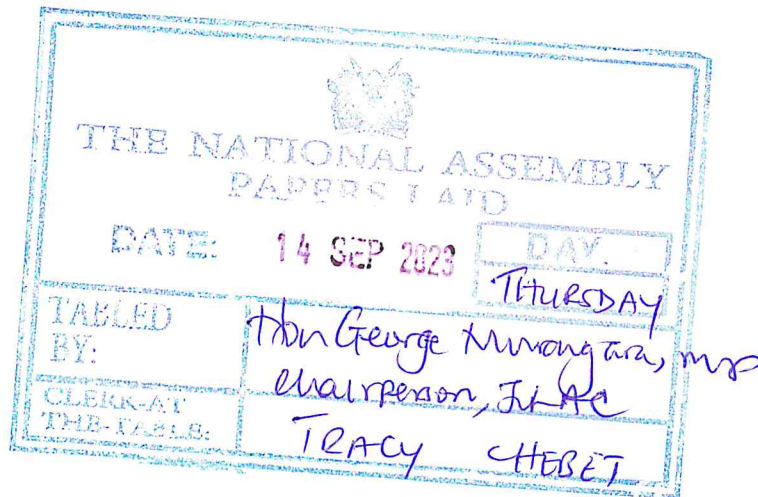 THE NATIONAL ASSEMBLY
PAPERS LAID
DATE: 14 SEP 2023 DAY.
THURSDAY
TABLED BY: Hon George Murugara, MP
Chairperson, JLAC
CLERK-AT THE-TABLE: TRACY CHEBET